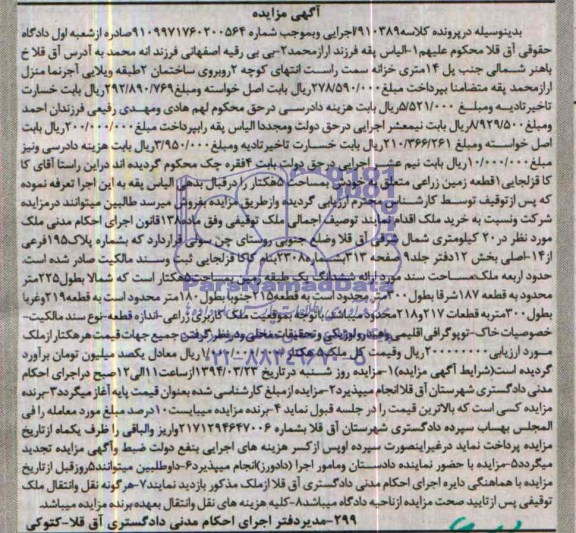 آگهی مزایده
بدینوسیله درپرونده کلاسه۹۱۰۳۸۹/اجرایی وبموجب شماره ۹۱۰۹۹۷۱۷۶۰۲۰۰۵۶۴صادره ازشعبه اول دادگاه
حقوقی آق قلا محکوم علیهم۱-الیاس پقه فرزند ارازمحمد۲-بی بی رقیه اصفهانی فرزند انه محمد به آدرس آق قلا خ
باهنر شمالی جنب پل ۱۴متری خزانه سمت راست انتهای کوچه ۲روبروی ساختمان ۲طبقه ویلایی آجرنما منزل
ارازمحمد پقه متضامنا بپرداخت مبلغ۲۷۸/۵۹۰/۰۰۰ریال بابت اصل خواسته ومبلغ۲۹۲/۸۹۰/۷۶۹ریال بابت خسارت
تاخیرتادیه ومبلغ ۵/۵۲۱/۰۰۰ریال بابت هزینه دادرسی درحق محکوم لهم هادی ومهدی رفیعی فرزندان احمد
ومبلغ۸/۹۲۹/۵۰۰ریال بابت نیمعشر اجرایی درحق دولت ومجددا الیاس پقه رابپرداخت مبلغ۲۰۰/۰۰۰/۰۰۰ریال بابت
اصل خواسته ومبلغ ۲۱۰/۳۶۶/۲۶۱ریال بابت خسارت تاخیرتادیه ومبلغ ۳/۹۵۰/۰۰۰ریال بابت هزینه دادرسی ونیز
مبلغ۱۰/۰۰۰/۰۰۰ریال بابت نیم عشر اجرایی درحق دولت بابت ۴فقره چک محکوم گردیده اند دراین راستا آقای کا
کا قزلجایی۱قطعه زمین زراعی متعلق به خودش بمساحت ۵هکتار را درقبال بدهی الیاس پقه به این اجرا تعرفه نموده
که پس ازتوقیف توسط کارشناس محترم ارزیابی گردیده وازطریق مزایده بفروش میرسد طالبین میتوانند درمزایده
شرکت ونسبت به خرید ملک اقدام نمایند توصیف اجمالی ملک توقیفی وفق ماده۱۳۸قانون اجرای احکام مدنی ملک
مورد نظر در۲۰ کیلومتری شمال شرقی آق قلا وضلع جنوبی روستای چن سولی قراردارد که بشماره پلاک۱۹۵فرعی
از۱۴-اصلی بخش ۱۲دفتر جلد۹صفحه ۳۱۳بشماره۲۳۰۸بنام کاکا قزلجایی ثبت وسند مالکیت صادر شده است.
حدود اربعه ملک-مساحت سند مورد ارائه ششدانگ یک قطعه زمین بمساحت۵هکتار است که شمالا بطول۲۲۵متر
محدود به قطعه ۱۸۷شرقا بطول۳۰۰متر محدود است به قطعه۲۱۵جنوبا بطول۱۸۰متر محدود است به قطعه۲۱۹وغربا
بطول۳۰۰متربه قطعات ۲۱۷و۲۱۸محدود میباشد.باتوجه بموقعیت ملک کاربری زراعی-اندازه قطعه-نوع سند مالکیت-
خصوصیات خاک-توپوگرافی اقلیمی وهیدرولوژیکی وتحقیقات محلی ودرنظر گرفتن جمیع جهات قیمت هرهکتار ازملک
مورد ارزیابی۲۰۰۰۰۰۰۰۰ریال وقیمت کل ملک ریال معادل یکصد میلیون تومان برآورد
گردیده است(شرایط آگهی مزایده)۱-مزایده روز شنبه درتاریخ ۱۳۹۴/۰۳/۲۳ازساعت۱۱الی۱۲صبح دراجرای احکام
مدنی دادگستری شهرستان آق قلاانجام میپذیرد۲-مزایده ازمبلغ کارشناسی شده بعنوان قیمت پایه آغاز میگردد۳-برنده
مزایده کسی است که بالاترین قیمت را در جلسه قبول نماید ۴-برنده مزایده میبایست۱۰درصد مبلغ مورد معامله را فی
المجلس بهساب سپرده دادگستری شهرستان آق قلا بشماره ۲۱۷۱۲۹۴۶۴۷۰۰۶واریز والباقی را ظرف یکماه ازتاریخ
مزایده پرداخت نماید درغیراینصورت سپرده اوپس ازکسر هزینه های اجرایی بنفع دولت ضبط وآگهی مزایده تجدید
میگردد۵-مزایده با حضور نماینده دادستان ومامور اجرا (دادورز)انجام میپذیرد۶-داوطلبین میتوانند۵روزقبل ازتاریخ
مزایده با هماهنگی دایره اجرای احکام مدنی دادگستری آق قلا ازملک مذکور بازدید نمایند۷-هرگونه نقل وانتقال ملک
توقیفی پس ازتایید صحت مزایده ازناحیه دادگاه میباشد۸-کلیه هزینه های نقل وانتقال بعهده برنده مزایده میباشد.
۲۹۹-مدیردفتر اجرای احکام مدنی دادگستری آق قلا-کتوکی
ParsNamadData
۰۲۱-۸۸۳۴۹۶۷۰